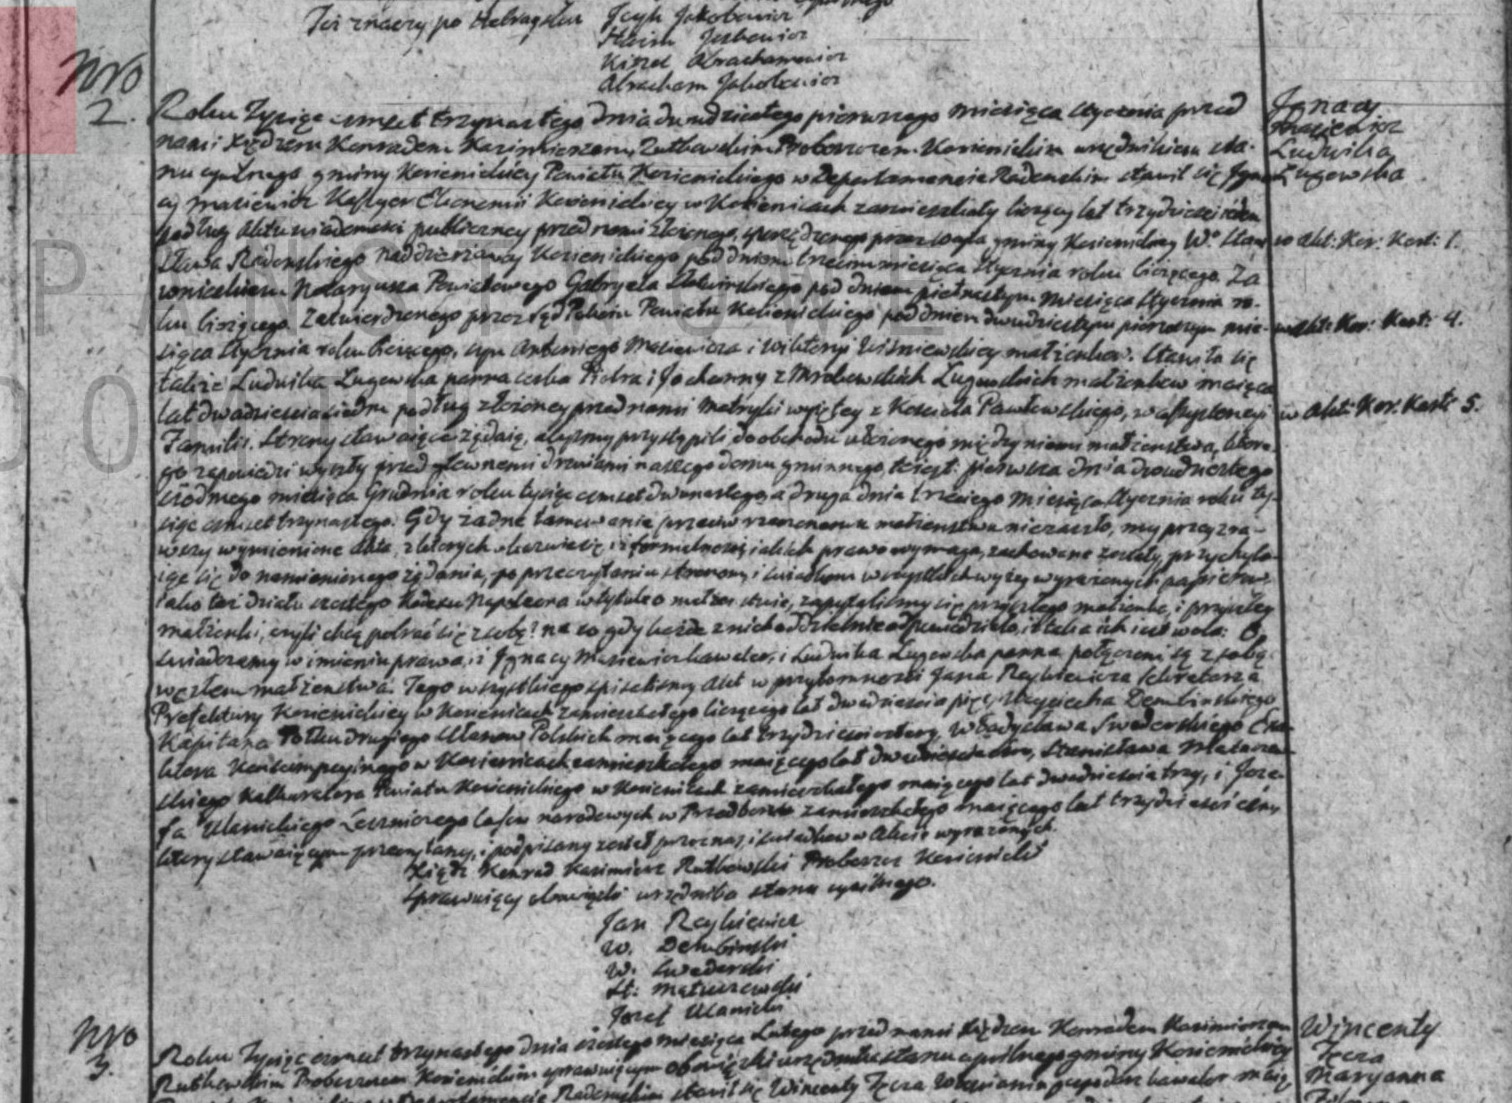 Też znaczy po Hebraysku Jcyk Jakobowicz
Haim Joskowicz
Kisiel Abrachamowicz
Abracham Jakobowicz
Nro
2.
Roku Tysiąc osmset trzynastego dnia dwudziestego pierwszego miesiąca Stycznia przed
nami Xiędzem Konradem Kazimierzem Rutkowskim Proboszczem Kozienickim urzędnikiem sta-
nu cywilnego gminy Kozienickiey Powiatu Kozienickiego w Departamencie Radomskim stawił się Jgna-
cy Maciewicz Kassyer Ekonomii Kozienickiey w Kozienicach zamieszkały liczący lat trzydzieści
podług Aktu wiadomości publiczney przed nami złożonego, sporządzonego przez Woyta gminy Kozienickiey Wo Stani-
sława Radomskiego naddzierżawcy Kozienickiego pod dniem trzecim miesiąca Stycznia roku bieżącego. Za
Notaryusza Powiatowego Gabryela pod dniem piętnastym miesiąca Stycznia ro-
ku bieżącego. Zatwierdzonego przez Sąd Pokoiu Powiatu Kozienickiego pod dniem dwudziestym pierwszym mie-
siąca Stycznia roku bieżącego, syn Antoniego Maciewicza i Wiktoryi Wiśniewskiey małżonków. Stawiła się
także Ludwika Lugowska panna córka Piotra i Johanny z Mrokowskich Lugowskich małżonków maiąca
lat dwadzieścia siedm podług złożoney przed nami Metryki wyiętey z Kościoła Pawłowskiego, w assystencyi
Familii. Strony stawaiące żądaią, abyśmy przystąpili do obchodu ułożonego między niemi małżeństwa, które-
go zapowiedzi wyszły przed głównemi drzwiami naszego domu gminnego, to iest: pierwsza dnia dwudziestego
siodmego miesiąca Grudnia roku tysiąc osmset dwunastego, a druga dnia trzeciego miesiąca Stycznia roku ty-
siąc osmset trzynastego. Gdy żadne tamowanie przeciw rzeczonemu małżeństwu niezaszło, my przeyrza-
wszy wymienione Akta, z których okazuie się, iż formalności iakich prawo wymaga, zachowane zostały, przychyla-
iąc się do namienionego żądania, po przeczytaniu stronom i świadkom wszystkich wyżey wyrażonych papierów
iako też działu szóstego Kodexu Napoleona w tytule o małżeństwie, zapytaliśmy się przyszłego małżonka, i przyszłey
małżonki, czyli chcą pobrać się z sobą? na co gdy każde z nich oddzielnie odpowiedziało, iż taka ich iest wola: O-
świadczamy w imieniu prawa, iż Jgnacy Maciewicz kawaler, i Ludwika Lugowska panna połączeni są z sobą
węzłem małżeństwa. Tego wszystkiego spisaliśmy Akt w przytomności Jana Reykiewicza Sekretarza
Prefektury Kozienickiey w Kozienicach zamieszkałego liczącego lat dwadzieścia pięć, Woyciecha Dembińskiego
Kapitana Półku drugiego Ułanów Polskich maiącego lat trzydzieści cztery, Władysława Swederskiego
Konsumpcyinego w Kozienicach zamieszkałego maiącego lat dwadzieścia, Stanisława Matuszew-
skiego Kalkulatora Powiatu Kozienickiego w Kozienicach zamieszkałego maiącego lat dwadzieścia trzy, i Józe-
fa Ulanickiego Leśniczego lasów narodowych w zamieszkałego maiącego lat trzydzieści
który stawaiącym przeczytany, i podpisany został przez nas, i świadków w Akcie wyrażonych.
Xiądz Konrad Kazimierz Rutkowski Proboszcz Kozienicki
Sprawuiący obowiązki urzędnika stanu cywilnego.
Jan Reykiewicz
W. Dembinski
W. Swederski
St. Matuszewski
Jozef Ulanicki
Jgnacy
Maciewicz
Ludwika
Lugowska
w Akt: Kor: Kart: 1.
w Akt: Kor: Kart: 4.
w Akt: Kor: Kart: 5.
Nro
3.
Roku Tysiąc osmset trzynastego dnia szóstego miesiąca Lutego przed nami Xiędzem Konradem Kazimierzem
Rutkowskim Proboszczem Kozienickim sprawuiącym obowiązki urzędnika stanu cywilnego gminy Kozienickiey
Radomskim stawił się Wincenty Tęcza gospodarz kawaler maią-
Wincenty
Tęcza
Maryanna
PAŃSTWOWE